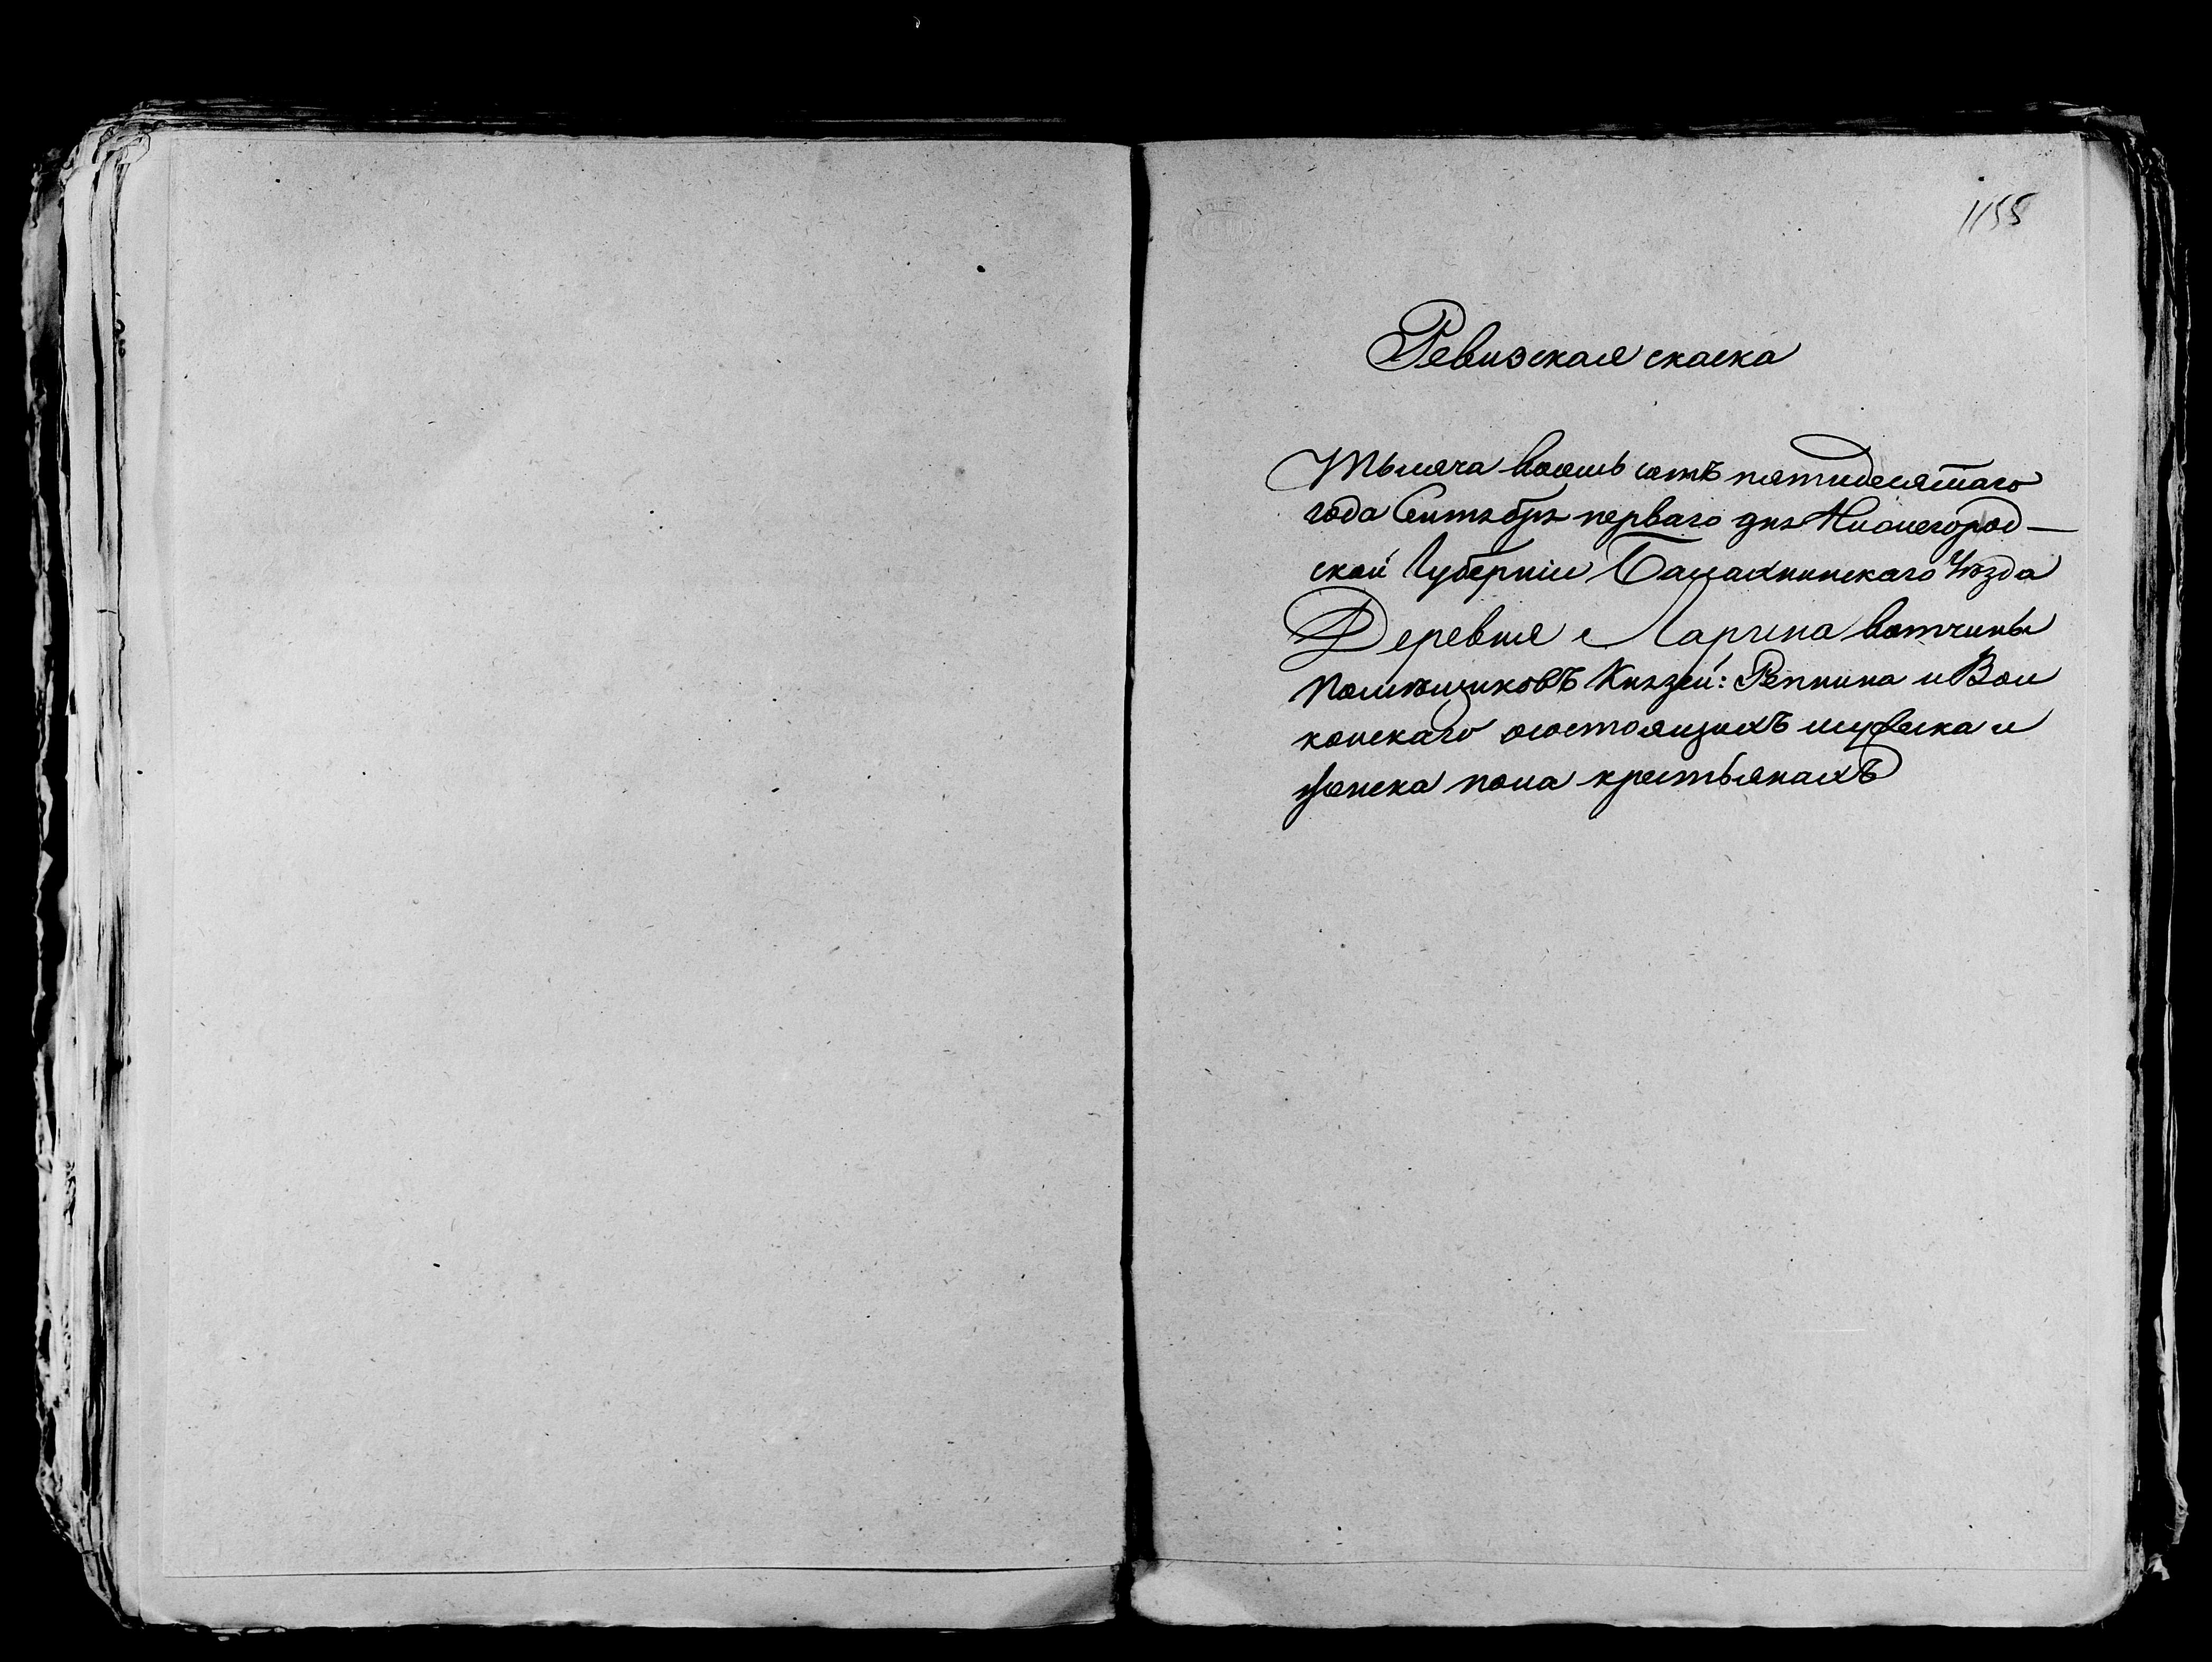 1155
Ревизская скаска
Тысяча восемь сотъ пятидесятаго
года Сентября перваго дня Нижегород-
ской Губерніи Балахнинскаго Уѣзда
Деревня Ларина вотчины
помѣщиковъ Князей: Репнина и Вол
конскаго осостоящихъ мужеска и
женска пола крестьянахъ